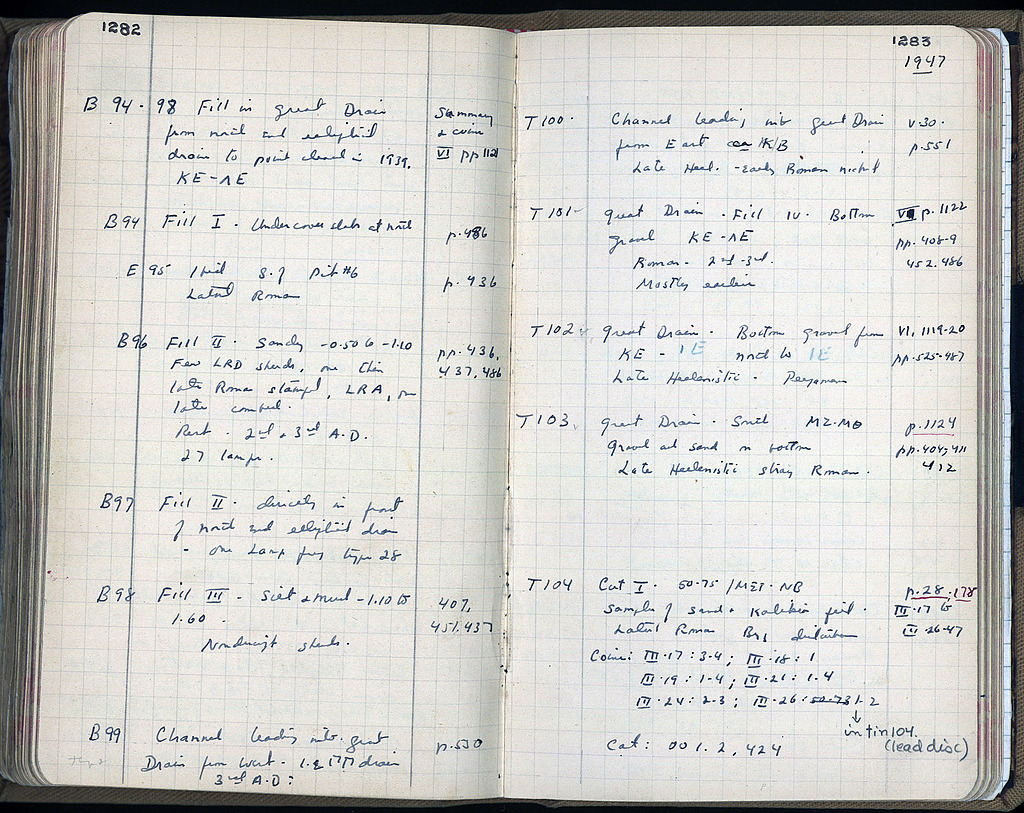 1282
B 94 - 98 Fill in great Drain Summary
from north end elliptical & coins
drain to point closed in 1939. VI pp 1121
KE-ΛE
B94 Fill I. Under cover slabs at north p. 486
E 95 S. of Pit #6 p. 436
Later Roman
B96 Fill II. Sandy -0.50 to -1.10 pp. 436,
Few LRD sherds, one thin 437, 486
late Roman stamped, LRA, one
late combed.
Rest. 2nd + 3rd A.D.
27 lamps.
B97 Fill II. directly in front
of north end elliptical drain
- one Lamp frag type 28
B98 Fill III - Silt & mud -1.10 to 407,
1.60. 451.437
Nondescript sherds.
B99 Channel leading into great p. 530
Drain from West. drain
3rd A.D:
1283
1947
T100. Channel leading into great Drain V.30.
from East p.551
Late Hell. - early Roman
T101- Great Drain. Fill IV. Bottom p. 1122
gravel KE-ΛE pp. 408-9
Roman - 2nd-3rd. 452.486
Mostly earlier
T102. Great Drain. Bottom gravel from VI, 1119-20
KE - IE north to IE pp. 525-487
Late Hellenistic - Pergamene
T103. Great Drain. South MZ-MΘ p. 1124
Gravel and sand on bottom pp. 404, 411
Late Hellenistic stray Roman. 412
T104 Cut I. 50-75 /ΜΣΤ-ΝΒ p. 28, 178
Sample of sand + III.17 to
Later Roman III.26-47
Coins: III.17: 3-4; III.18: 1
III.19: 1-4; III.21: 1-4
III.24: 2-3; III.26: 1-2
↓
in tin 104.
(lead disc)
Cat: 001.2, 424